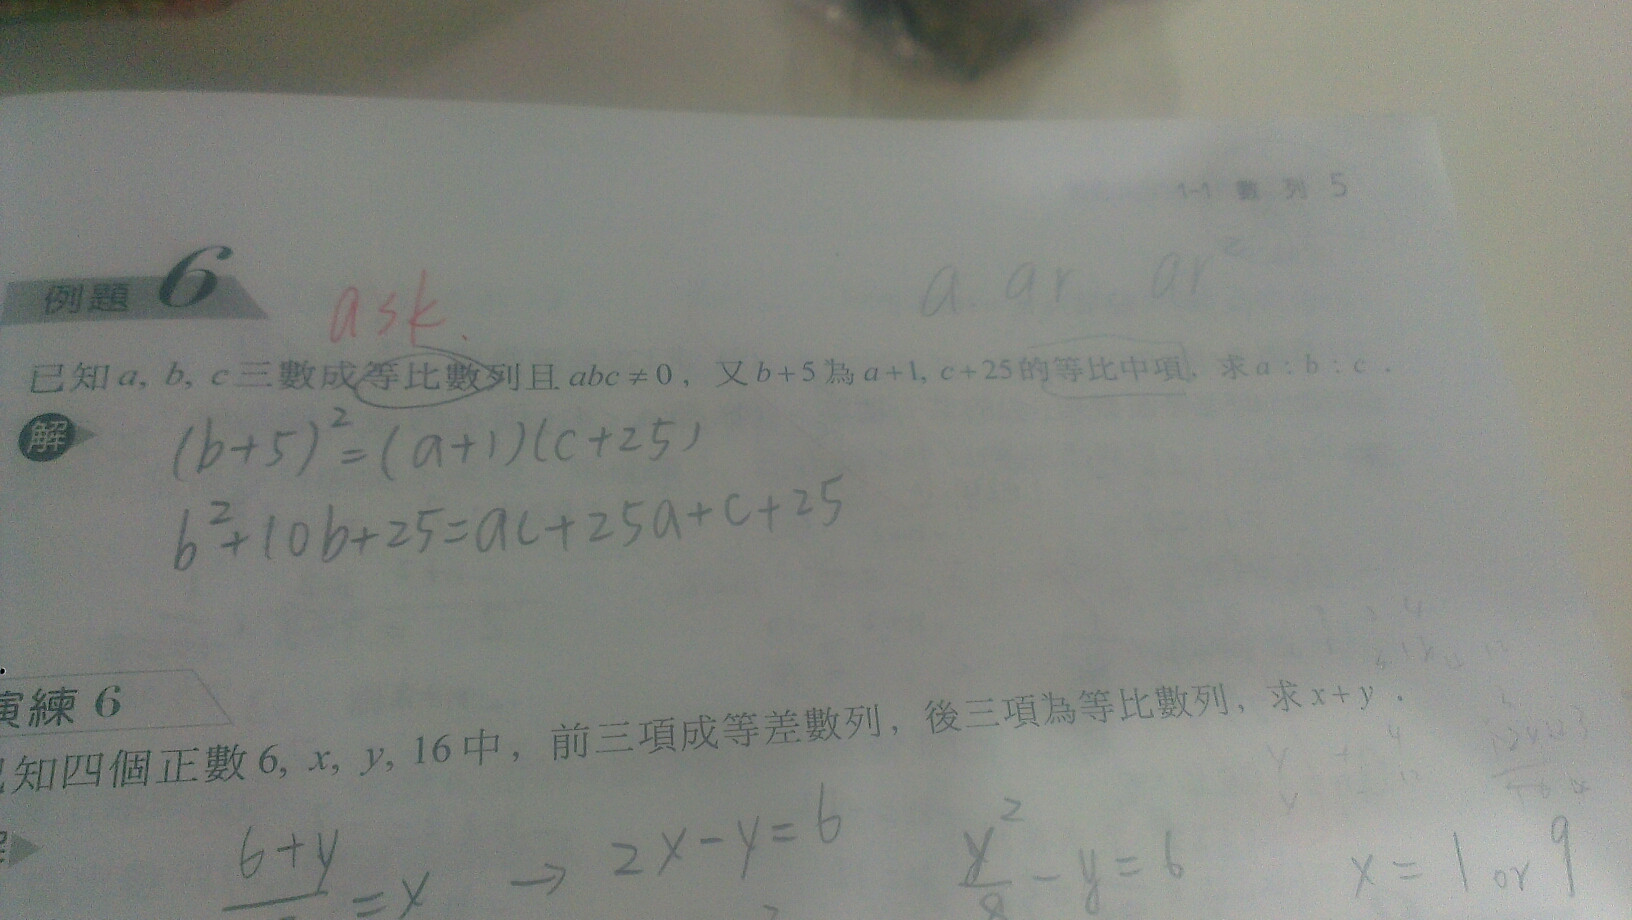 1-1 數 列 5
例題 6
ask.
a ar ar²
已知 a, b, c 三數成等比數列且 abc ≠ 0，又 b+5 為 a+1, c+25 的等比中項，求 a : b : c .
解
(b+5)² = (a+1)(c+25)
b²+10b+25=ac+25a+c+25
演練 6
知四個正數 6, x, y, 16 中，前三項成等差數列，後三項為等比數列，求 x+y .
6+y = x → 2x-y=6 y²/8 - y = 6 x = 1 or 9